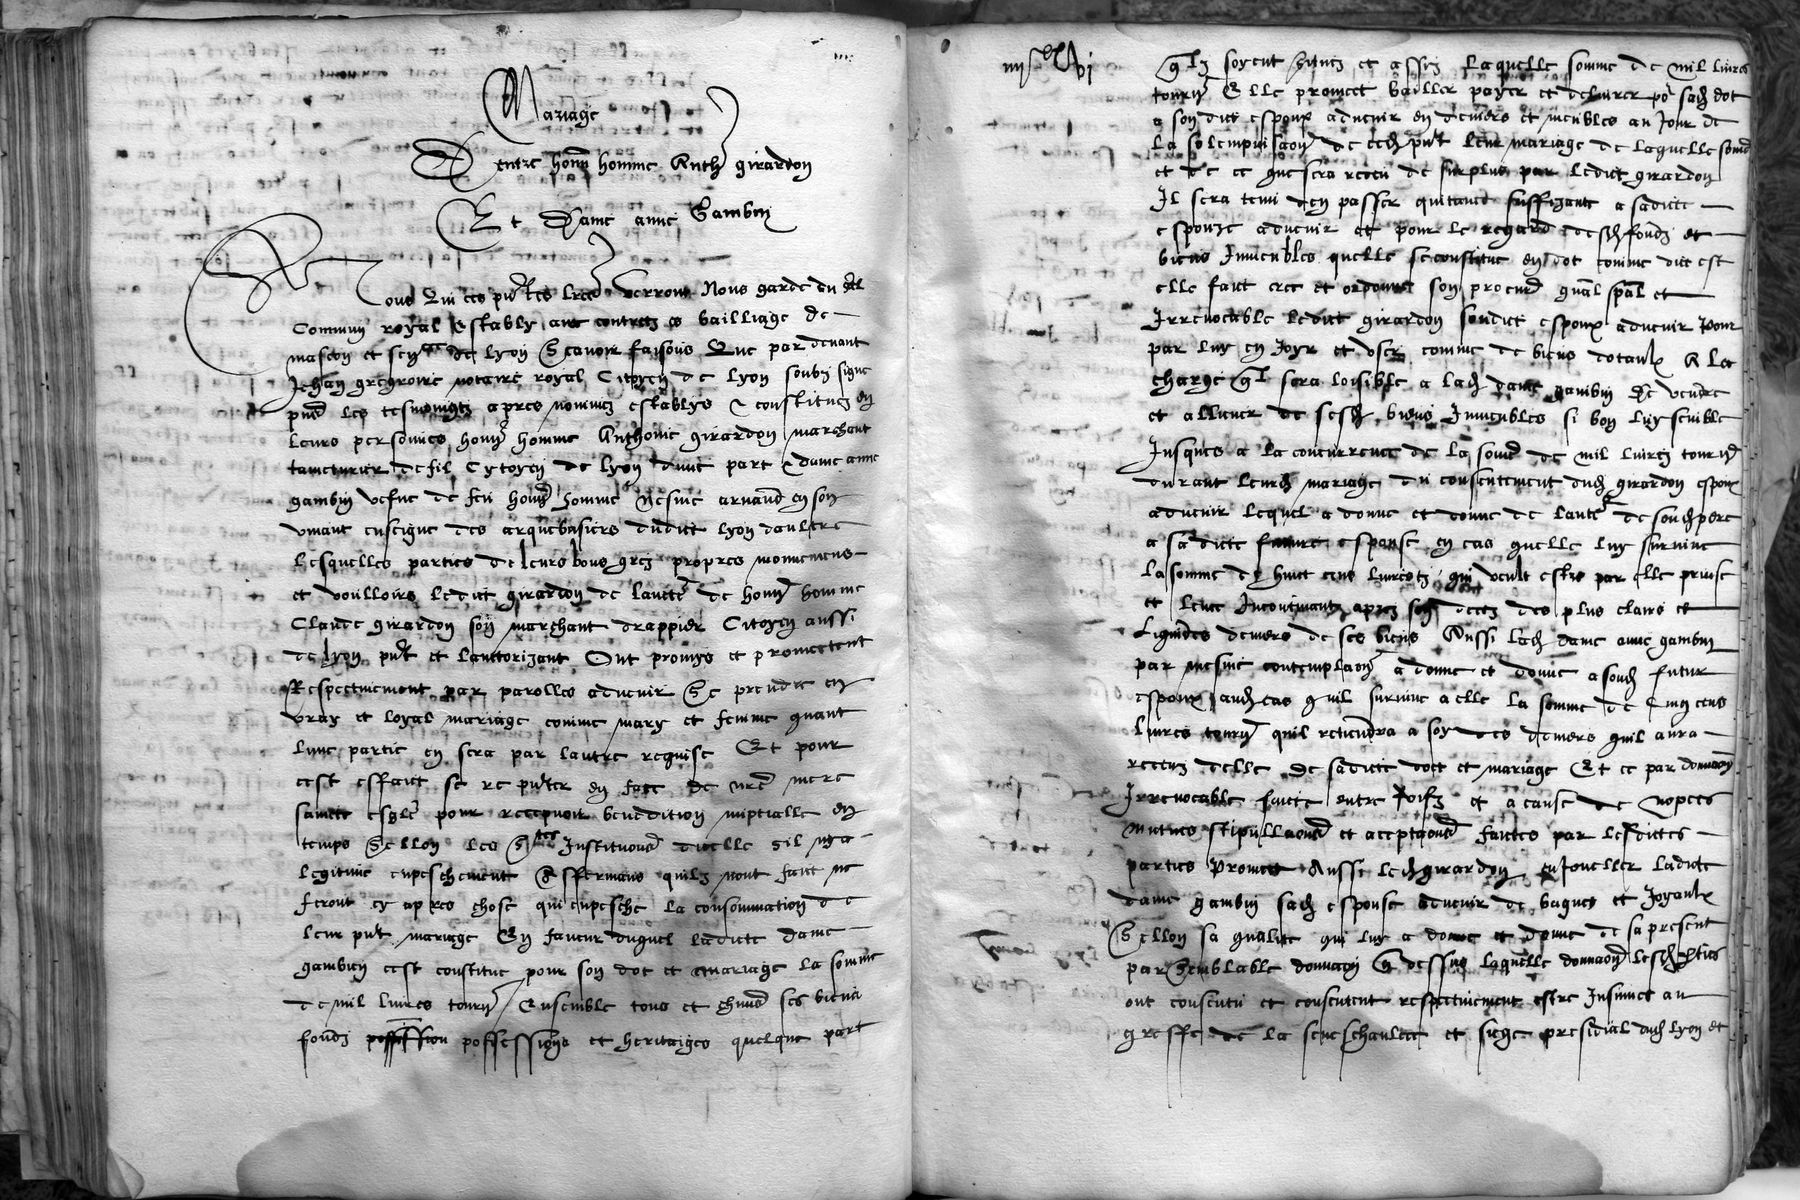 Mariage
D entre hon. homme Anth. girardon
Et Dame anne Gambin
A Tous Qui ces pntes lres verront Nous garde du scel
Commun royal estably aux contretz es bailliage de
mascon et sen de lyon Scavoir faisons Que par devant
Jehan gregroire notaire royal Citoyen de Lyon soubz signe
pns les tesmoingtz apres nommez establys & constituez en
leurs personnes hon. homme Anthoine girardon marchant
taincturier de fil Cytoyen de lyon dune part & dame anne
gambin vefve de feu hon. homme arnaud en son
vivant enseigne des arquebusiers dudict lyon daultre
lesquelles parties de leurs bons grez propres mouvemens
et voulloirs ledict girardon de laucte de hon. homme
Claude girardon son marchant drappier Citoyen aussi
de lyon pnt et lauctorizant Ont promys et promectent
Respectivement par parolles advenir Se prendre en
vray et loyal mariage comme mary et femme quant
lune partie en sera par lautre requise Et pour
cest effaict se re pnter en face de nre mere
saincte esglé pour recepvoir benedition nuptialle en
temps Sellon les Stes Institutions dicelle sil nya
legitime empeschement Affermans quilz nont faict ne
feront cy apres chose qui empesche la consommation de
leur pnt mariage En faveur duquel ladicte dame
gambin cest constitue pour son dot et mariage la somme
de mil livres tourn. Ensemble tous et chuns ses biens
fondz possession possessions et heritaiges quelque part
iiii xx Vi
qlz soyent scituez et assiz Laquelle somme de mil livres
tourn. Elle promect bailler payer et delivrer po. sad dot
a son dict espoux advenir en deniers et meubles au Jour de
la solempnisaon de ced pnt leur mariage de laquelle somme
et de ce que sera receu de surplus par ledict girardon
Il sera tenu den passer quitance suffizante a sadicte
espouze advenir et pour le regard desd fondz et
biens Immeubles quelle se constitue en dot comme dict est
elle faict cree et ordonne son procur gnal spal et
Irrevocable ledict girardon sondict espoux advenir pour
par luy en Joyr et user comme de biens dotaulx A la
charge ql sera loisible a lad dame gambin de vendre
et alliener de sesd biens Immeubles si bon luy semble
Jusques a la concurrence de la some de mil livres tourn.
durant leurd mariage du consentement dud girardon espoux
advenir lequel a donne et donne de laucte de sond pere
a sa dicte future espouse en cas quelle luy survive
la somme de huict cens livres tz qui veult estre par elle prinse
et levee Incontinant apres son deces des plus clairs et
Liquides deniers de ses biens Aussi lad dame anne gambin
par mesme contemplaon a donne et donne a sond futur
espoux aud cas quil survive a elle la somme de Cinq cens
livres tourn. quil retiendra a soy des deniers quil aura
receuz delle de sadicte doct et mariage Et ce par donnaon
Irrevocable faicte entre vifz et a cause de nopces
mutues stipullaons et acceptaons faictes par lesdictes
parties Promect Aussi led girardon enJoueller ladict
dame gambin sad espouse advenir de bagues et Joyaulx
Sellon sa qualite qui luy a donne et donne de sa present
par Semblable donnaon q dessus laquelle donnaon lesd pties
ont consentu et consentent respectivement estre Insinuee au
greffe de la seneschaulcee et siege presidial dud lyon et